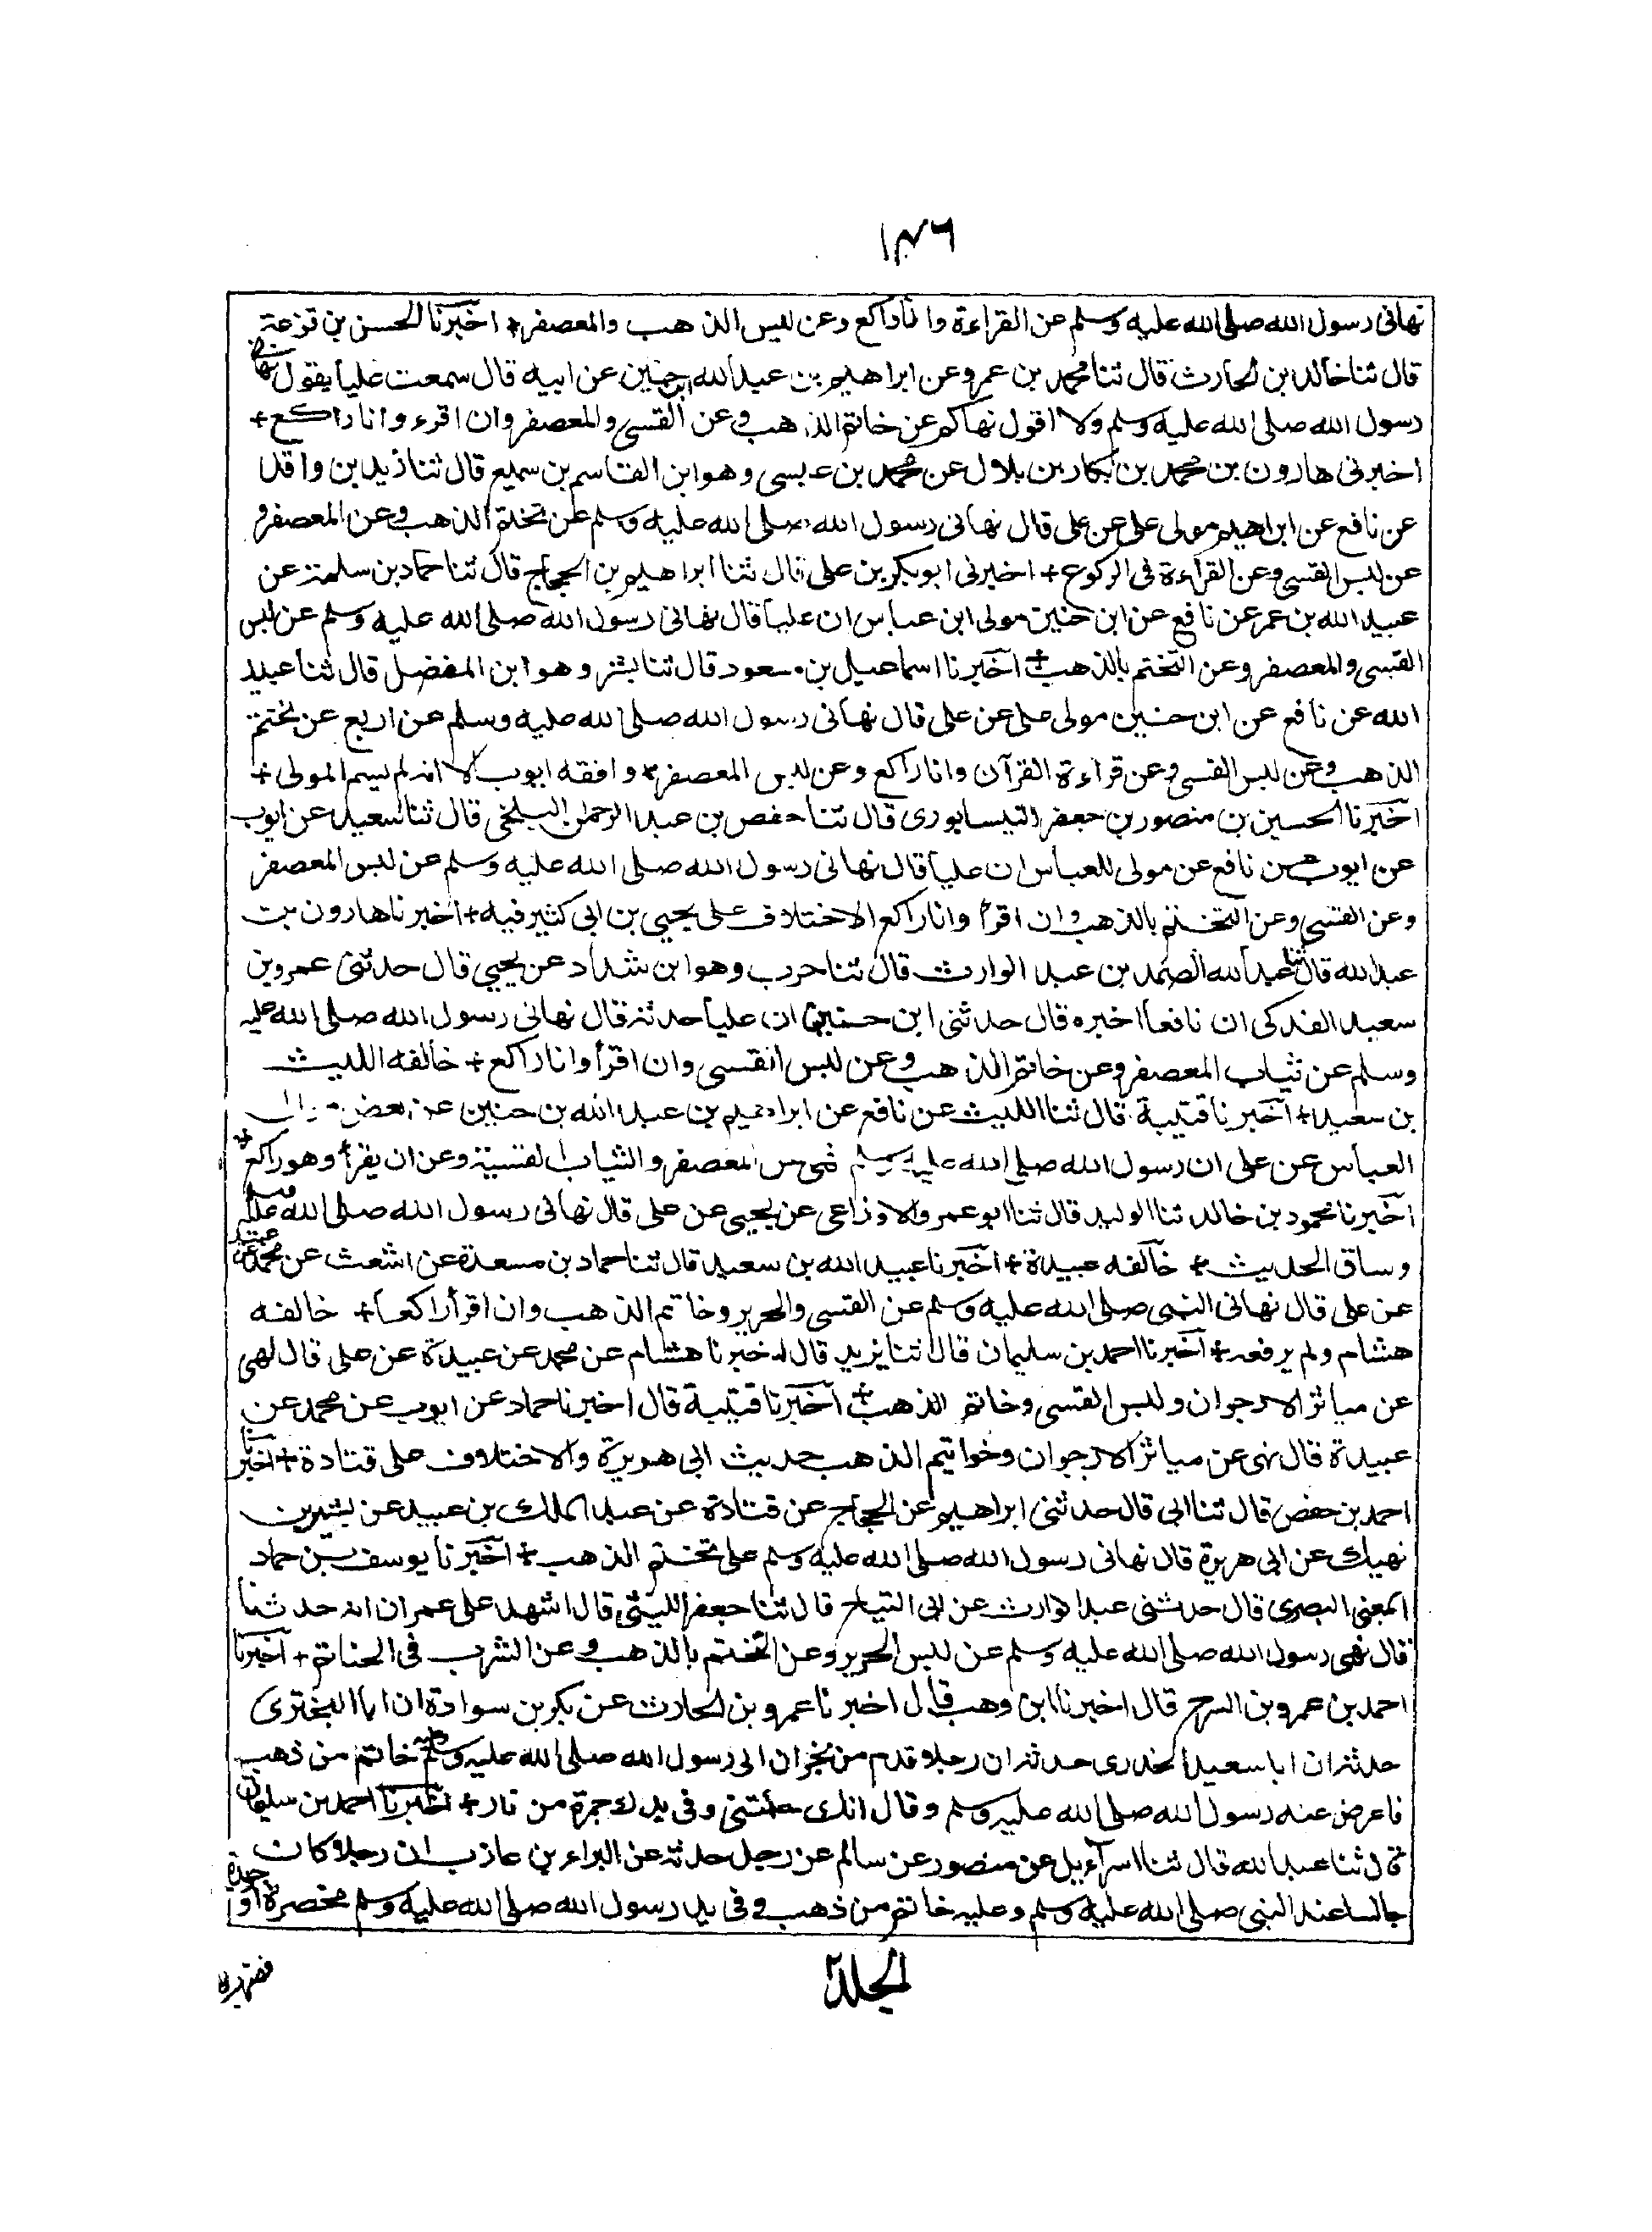 نهانى رسول الله صلى الله عليه وسلم عن القراءة وانا راكع وعن لبس الذهب والمعصفر + اخبرنا الحسن بن قزعة
قال ثنا خالد بن الحارث قال ثنا محمد بن عمرو عن ابراهيم بن عبد الله بن حنين عن ابيه قال سمعت عليا يقول نهانى
رسول الله صلى الله عليه وسلم ولا اقول نهاكم عن خاتم الذهب وعن القسى والمعصفر وان اقرء وانا راكع +
اخبرنى هارون بن محمد بن بكار بن بلال عن محمد بن عيسى وهو ابن القاسم بن سميع قال ثنا زيد بن واقد
عن نافع عن ابراهيم مولى على عن على قال نهانى رسول الله صلى الله عليه وسلم عن تختم الذهب وعن المعصفر و
عن لبس القسى وعن القراءة فى الركوع + اخبرنى ابو بكر بن على قال ثنا ابراهيم بن الحجاج قال ثنا حماد بن سلمة عن
عبيد الله بن عمر عن نافع عن ابن حنين مولى ابن عباس ان عليا قال نهانى رسول الله صلى الله عليه وسلم عن لبس
القسى والمعصفر وعن التختم بالذهب + اخبرنا اسماعيل بن مسعود قال ثنا بشر وهو ابن المفضل قال ثنا عبيد
الله عن نافع عن ابن حنين مولى على عن على قال نهانى رسول الله صلى الله عليه وسلم عن اربع عن تختم
الذهب وعن لبس القسى وعن قراءة القرآن وانا راكع وعن لبس المعصفر + وافقه ايوب الا انه لم يسم المولى +
اخبرنا الحسين بن منصور بن جعفر النيسابورى قال ثنا حفص بن عبد الرحمن البلخى قال ثنا سعيد عن ايوب
عن ايوب عن نافع عن مولى للعباس ان عليا قال نهانى رسول الله صلى الله عليه وسلم عن لبس المعصفر
وعن القسى وعن التختم بالذهب وان اقرأ وانا راكع الاختلاف على يحيى بن ابى كثير فيه + اخبرنا هارون بن
عبد الله قال ثنا عبد الله الصمد بن عبد الوارث قال ثنا حرب وهو ابن شداد عن يحيى قال حدثنى عمرو بن
سعيد الفدكى ان نافعا اخبره قال حدثنى ابن حنين ان عليا حدثه قال نهانى رسول الله صلى الله عليه
وسلم عن ثياب المعصفر وعن خاتم الذهب وعن لبس القسى وان اقرأ وانا راكع + خالفه الليث
بن سعيد + اخبرنا قتيبة قال ثنا الليث عن نافع عن ابراهيم بن عبد الله بن حنين عن بعض موالى
العباس عن على ان رسول الله صلى الله عليه وسلم نهى عن المعصفر والثياب القسية وعن ان يقرأ وهو راكع +
اخبرنا محمود بن خالد ثنا الوليد قال ثنا ابو عمرو الاوزاعى عن يحيى عن على قال نهانى رسول الله صلى الله عليه وسلم
وساق الحديث + خالفه عبيدة + اخبرنا عبيد الله بن سعيد قال ثنا حماد بن مسعدة عن اشعث عن محمد عن عبيدة
عن على قال نهانى النبى صلى الله عليه وسلم عن القسى والحرير وخاتم الذهب وان اقرأ راكعا + خالفه
هشام ولم يرفعه + اخبرنا احمد بن سليمان قال ثنا يزيد قال اخبرنا هشام عن محمد عن عبيدة عن على قال نهى
عن مياثر الارجوان ولبس القسى وخاتم الذهب + اخبرنا قتيبة قال اخبرنا حماد عن ايوب عن محمد عن
عبيدة قال نهى عن مياثر الارجوان وخواتيم الذهب حديث ابى هريرة والاختلاف على قتادة + اخبرنا
احمد بن حفص قال ثنا ابى قال حدثنى ابراهيم عن الحجاج عن قتادة عن عبد الملك بن عبيد عن بشير بن
نهيك عن ابى هريرة قال نهانى رسول الله صلى الله عليه وسلم على تختم الذهب + اخبرنا يوسف بن حماد
المعنى البصرى قال حدثنى عبد الوارث عن ابى التياح قال ثنا جعفر الليثى قال اشهد على عمران انه حدثنا
قال نهى رسول الله صلى الله عليه وسلم عن لبس الحرير وعن التختم بالذهب وعن الشرب فى الحناتم + اخبرنا
احمد بن عمرو بن السرح قال اخبرنا ابن وهب قال اخبرنا عمرو بن الحارث عن بكر بن سوادة ان ابا البخترى
حدثه ان ابا سعيد الخدرى حدثه ان رجلا قدم من نجران الى رسول الله صلى الله عليه وسلم وعليه خاتم من ذهب
فاعرض عنه رسول الله صلى الله عليه وسلم وقال انك جئتنى وفى يدك جمرة من نار + اخبرنا احمد بن سليمان
قال ثنا عبد الله قال ثنا اسرآءيل عن منصور عن سالم عن رجل حدثه عن البراء بن عازب ان رجلا كان
جالسا عند النبى صلى الله عليه وسلم وعليه خاتم من ذهب وفى يد رسول الله صلى الله عليه وسلم مخصرة او جريدة
المجلد ٢